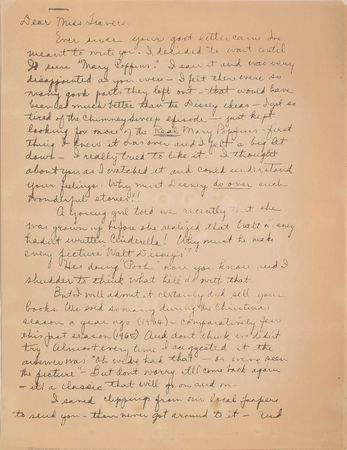 Dear Miss Travers.
Ever since your good letter came I've
meant to write you. I decided to wait until
I'd seen "Mary Poppins." I saw it and was very
disappointed as you were - I felt there were so
many good parts they left out - that would have
been much better than the Disney ideas - I got so
tired of the Chimney sweep episode - just kept
looking for more of the Real Mary Poppins - first
thing I knew it was over and I felt a big let
down - I really tried to like it. I thought
about you as I watched it and could understand
your feelings. Why must Disney do over such
wonderful stories!!
A young girl told us recently that she
was grown up before she realized that Walt Disney
hadn't written Cinderella! Why must he make
every picture "Walt Disney's"?
He's doing "Pooh" now you know and I
shudder to think what he'll do with that
But I will admit it certainly did sell your
books. We sold so many during the Christmas
season a year ago (1964) - comparatively few
this past season (1965) And don't think we didn't
try! Almost every time I suggested it the
answer was "Oh we've had that" - or we've seen
the picture" - But don't worry it'll come back again
- it's a classic that will go on and on -
I saved clippings from our local papers
to send you - then never got around to it - and